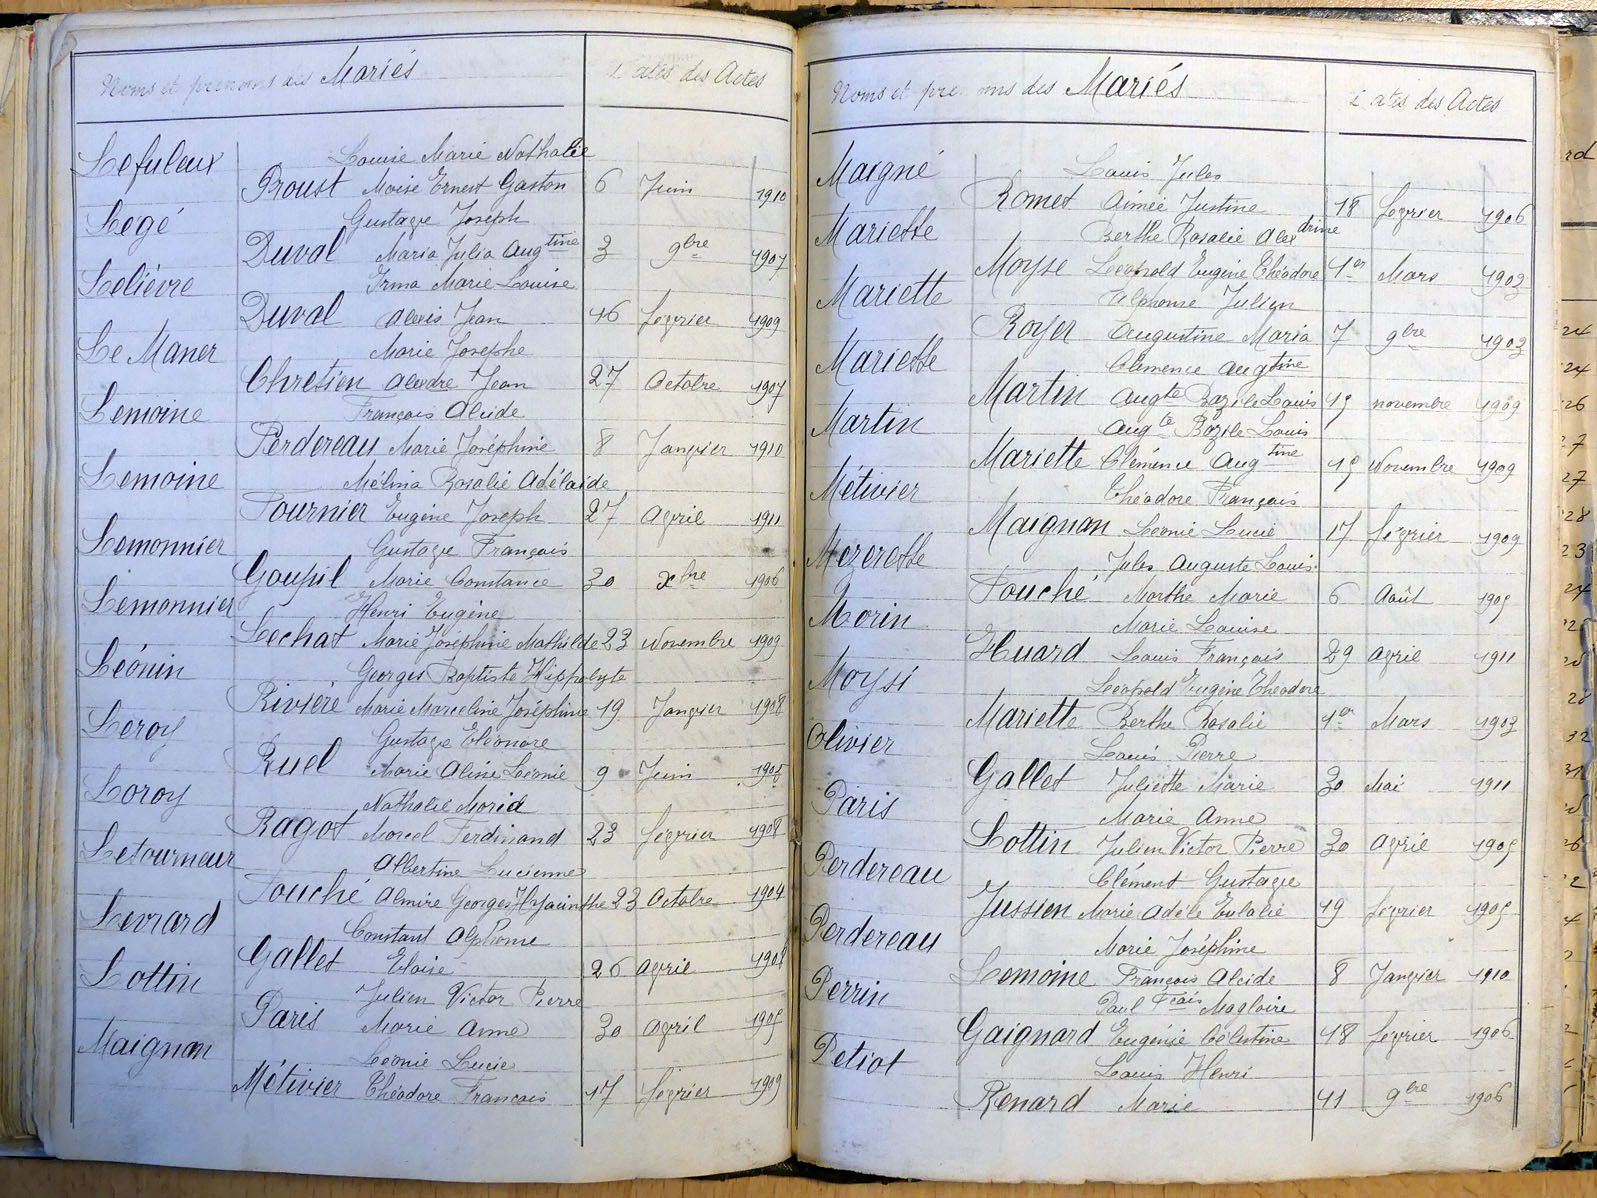 Noms et prénoms des Mariés
Dates des Actes
Lefuleux Louise Marie Nathalie
Proust Moïse Ernest Gaston 6 Juin 1910
Legé Gustave Joseph
Duval Maria Julia Augtine 3 9bre 1907
Lelièvre Irma Marie Louise
Duval Alexis Jean 16 février 1909
Le Maner Marie Josèphe
Chretien Alexdre Jean 27 Octobre 1907
Lemoine François Alcide
Perdereau Marie Joséphine 8 Janvier 1910
Lemoine Mélina Rosalie Adélaïde
Fournier Eugène Joseph 27 Avril 1911
Lemonnier Gustave François
Goupil Marie Constance 30 xbre 1906
Lemonnier Henri Eugène
Lechat Marie Joséphine Mathilde 23 Novembre 1909
Léonin Georges Baptiste Hippolyte
Rivière Marie Marceline Joséphine 19 Janvier 1908
Leroy Gustave Eléonore
Ruel Marie Aline Léonie 9 Juin
Loroy Nathalie Maria
Ragot Marcel Ferdinand 23 février 1908
Letourneur Albertine Lucienne
Touché Almire Georges Hyacinthe 23 Octobre 1904
Levrard Constant Alphonse
Gallet Eloise 26 Avril 1908
Lottin Julien Victor Pierre
Paris Marie Anne 30 Avril 1905
Maignan Léonie Lucie
Métivier Théodore François 17 février 1909
Noms et prénoms des Mariés
Dates des Actes
Maigné Louis Jules
Romet Aimée Justine 18 février 1906
Mariette Berthe Rosalie Alexdrine
Moyse Léopold Eugène Théodore 1er Mars 1903
Mariette Alphonse Julien
Royer Augustine Maria 7 9bre 1903
Mariette Clémence Augtine
Martin Augte Bazile Louis 15 novembre 1909
Martin Augte Bazile Louis
Mariette Clémence Augtine 15 Novembre 1909
Métivier Théodore François
Maignan Léonie Lucie 17 février 1909
Mezerette Jules Auguste Louis
Touché Marthe Marie 6 Août 1905
Morin Marie Louise
Huard Louis François 29 Avril 1911
Moysi Léopold Eugène Théodore
Mariette Berthe Rosalie 1er Mars 1903
Olivier Louis Pierre
Gallet Juliette Marie 30 Mai 1911
Paris Marie Anne
Lottin Julien Victor Pierre 30 Avril 1905
Perdereau Clément Gustave
Jussien Marie Adèle Eulalie 19 février 1905
Perdereau Marie Joséphine
Lemoine François Alcide 8 Janvier 1910
Perrin Paul Fçais Magloire
Gaignard Eugénie Célestine 18 février 1906
Petiot Louis Henri
Renard Marie 11 9bre 1906